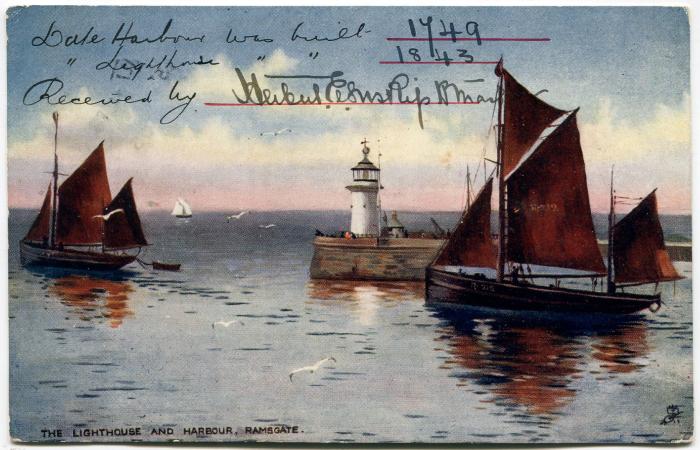 Date Harbour was built 1749
" Lighthouse " " 1843
Received by
THE LIGHTHOUSE AND HARBOUR, RAMSGATE.